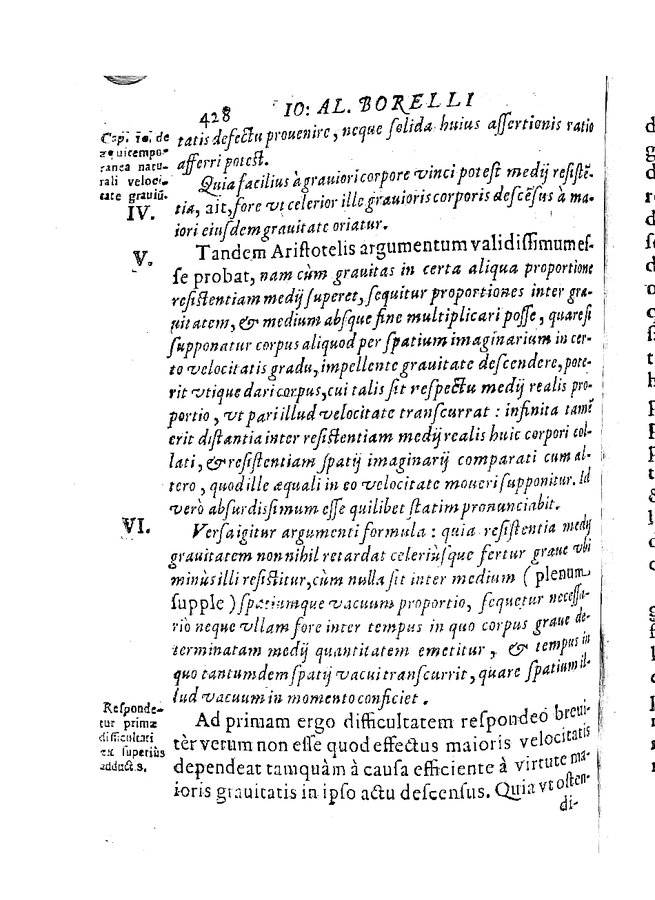 428 IO: AL. BORELLI
Cap. 10. de
æquitempo-
ranea natu-
rali veloci-
tate graviū.
tatis defectu prouenire, neque ſolida huius aſſertionis ratio
afferri poteſt.
Quia facilius à grauiori corpore vinci poteſt medij reſiſtē-
tia, ait, fore vt celerior ille grauioris corporis deſcēſus à ma-
iori eiuſdem grauitate oriatur.
IV.
V.
Tandem Ariſtotelis argumentum validiſſimum eſ-
ſe probat, nam cùm grauitas in certa aliqua proportione
reſiſtentiam medij ſuperet, ſequitur proportiones inter gra-
uitatem, & medium abſque fine multiplicari poſſe, quare ſi
ſupponatur corpus aliquod per ſpatium imaginarium in cer-
to velocitatis gradu, impellente grauitate deſcendere, pote-
rit vtique dari corpus, cui talis ſit reſpectu medij realis pro-
portio, vt pari illud velocitate tranſcurrat : infinita tamē
erit diſtantia inter reſiſtentiam medij realis huic corpori col-
lati, & reſiſtentiam ſpatij imaginarij comparati cum al-
tero, quod ille æquali in eo velocitate moueri ſupponitur. Id
verò abſurdiſſimum eſſe quilibet ſtatim pronunciabit.
VI.
Verſa igitur argumenti formula : quia reſiſtentia medij
grauitatem nonnihil retardat celeriùſque fertur graue vbi
minùs illi reſiſtitur, cùm nulla ſit inter medium ( plenum
ſupple ) ſpatiumque vacuum proportio, ſequetur neceſſa-
riò neque vllam fore inter tempus in quo corpus graue de-
terminatam medij quantitatem emetitur, & tempus in
quo tantumdem ſpatij vacui tranſcurrit, quare ſpatium il-
lud vacuum in momento conficiet.
Reſponde-
tur primæ
difficultati
ex ſuperiùs
adductis.
Ad primam ergo difficultatem reſpondeo breui-
tèr verum non eſſe quod effectus maioris velocitatis
dependeat tamquàm à cauſa efficiente à virtute ma-
ioris grauitatis in ipſo actu deſcenſus. Quia vt oſten-
di-